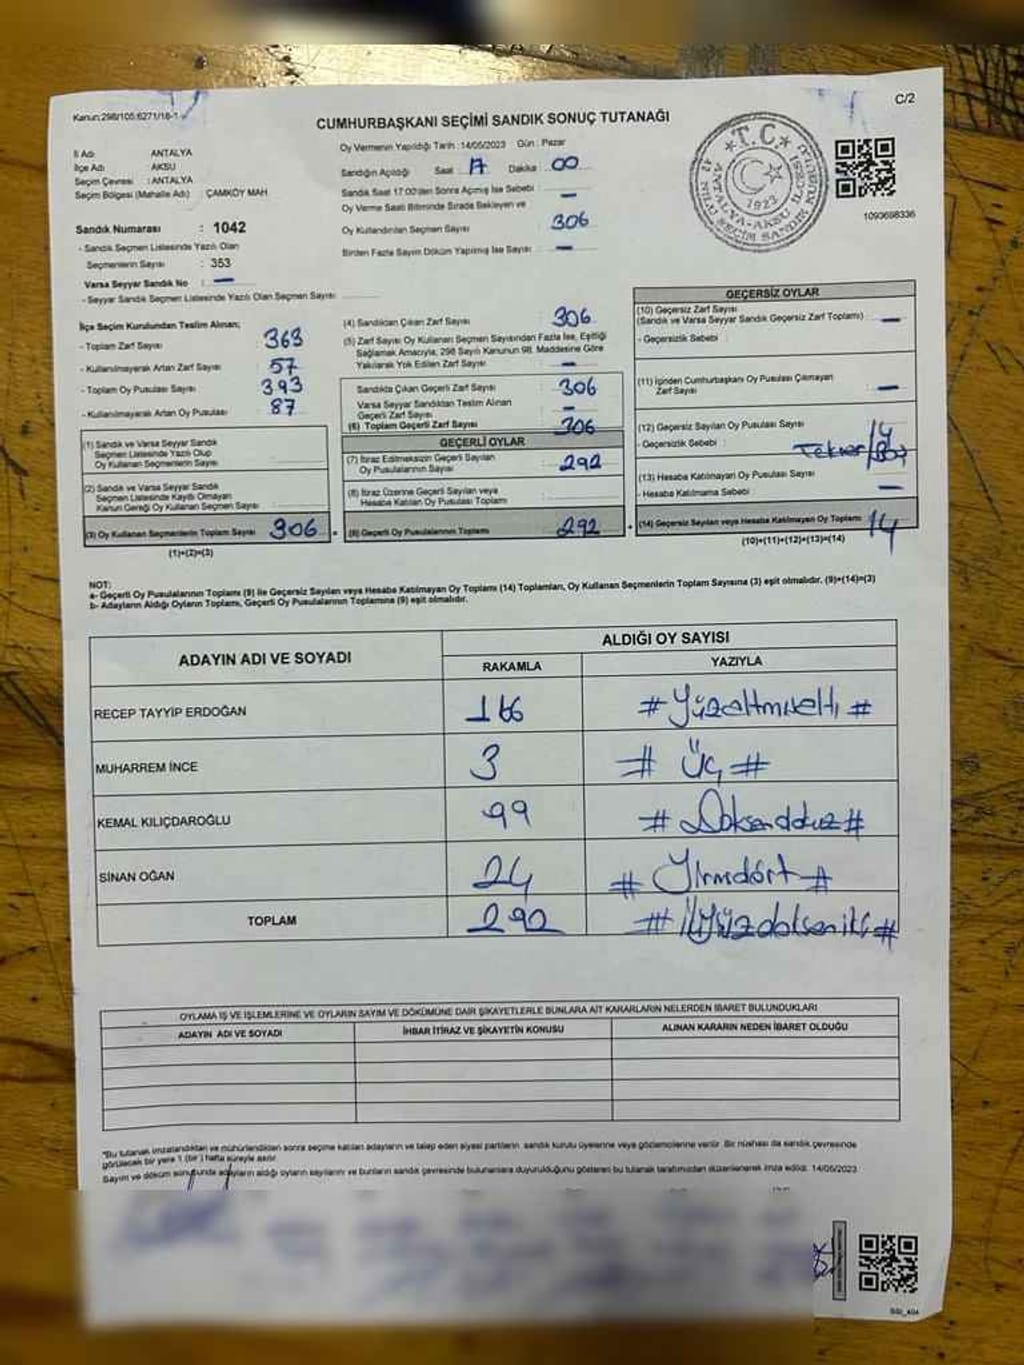 Kanun:298/105:6271/18-1
C/2
CUMHURBAŞKANI SEÇİMİ SANDIK SONUÇ TUTANAĞI
İl Adı ANTALYA
İlçe Adı AKSU
Seçim Çevresi : ANTALYA
Seçim Bölgesi (Mahalle Adı) ÇAMKÖY MAH
Sandık Numarası : 1042
- Sandık Seçmen Listesinde Yazılı Olan
Seçmenlerin Sayısı : 353
Varsa Seyyar Sandık No : —
- Seyyar Sandık Seçmen Listesinde Yazılı Olan Seçmen Sayısı
Oy Vermenin Yapıldığı Tarih : 14/05/2023 Gün : Pazar
Sandığın Açıldığı Saat 17 Dakika 00
Sandık Saat 17:00'den Sonra Açmış İse Sebebi —
Oy Verme Saati Bitiminde Sırada Bekleyen ve
Oy Kullandırılan Seçmen Sayısı 306
Birden Fazla Sayım Döküm Yapılmış İse Sayısı —
T.C.
1923
ANTALYA-AKSU İLÇESİ
1093698336
İlçe Seçim Kurulundan Teslim Alınan;
- Toplam Zarf Sayısı 363
- Kullanılmayarak Artan Zarf Sayısı 57
- Toplam Oy Pusulası Sayısı 393
- Kullanılmayarak Artan Oy Pusulası 87
(1) Sandık ve Varsa Seyyar Sandık
Seçmen Listesinde Yazılı Olup
Oy Kullanan Seçmenlerin Sayısı
(2) Sandık ve Varsa Seyyar Sandık
Seçmen Listesinde Kayıtlı Olmayan
Kanun Gereği Oy Kullanan Seçmen Sayısı
(3) Oy Kullanan Seçmenlerin Toplam Sayısı 306
(1)+(2)=(3)
(4) Sandıktan Çıkan Zarf Sayısı 306
(5) Zarf Sayısı Oy Kullanan Seçmen Sayısından Fazla İse, Eşitliği
Sağlamak Amacıyla, 298 Sayılı Kanunun 98. Maddesine Göre
Yakılarak Yok Edilen Zarf Sayısı —
Sandıkta Çıkan Geçerli Zarf Sayısı 306
Varsa Seyyar Sandıktan Teslim Alınan
Geçerli Zarf Sayısı —
(6) Toplam Geçerli Zarf Sayısı 306
GEÇERLİ OYLAR
(7) İtiraz Edilmeksizin Geçerli Sayılan
Oy Pusulalarının Sayısı 292
(8) İtiraz Üzerine Geçerli Sayılan veya
Hesaba Katılan Oy Pusulası Toplamı
(9) Geçerli Oy Pusulalarının Toplamı 292
GEÇERSİZ OYLAR
(10) Geçersiz Zarf Sayısı
(Sandık ve Varsa Seyyar Sandık Geçersiz Zarf Toplamı) —
- Geçersizlik Sebebi
(11) İçinden Cumhurbaşkanı Oy Pusulası Çıkmayan
Zarf Sayısı —
(12) Geçersiz Sayılan Oy Pusulası Sayısı 14
- Geçersizlik Sebebi
(13) Hesaba Katılmayan Oy Pusulası Sayısı —
- Hesaba Katılmama Sebebi
(14) Geçersiz Sayılan veya Hesaba Katılmayan Oy Toplamı 14
(10)+(11)+(12)+(13)=(14)
NOT:
a- Geçerli Oy Pusulalarının Toplamı (9) ile Geçersiz Sayılan veya Hesaba Katılmayan Oy Toplamı (14) Toplamları, Oy Kullanan Seçmenlerin Toplam Sayısına (3) eşit olmalıdır. (9)+(14)=(3)
b- Adayların Aldığı Oyların Toplamı, Geçerli Oy Pusulalarının Toplamına (9) eşit olmalıdır.
ADAYIN ADI VE SOYADI ALDIĞI OY SAYISI
RAKAMLA YAZIYLA
RECEP TAYYİP ERDOĞAN 166 # Yüzaltmışaltı #
MUHARREM İNCE 3 # Üç #
KEMAL KILIÇDAROĞLU 99 # Doksandokuz #
SİNAN OĞAN 24 # Yirmidört #
TOPLAM 292 # İkiyüzdoksaniki #
OYLAMA İŞ VE İŞLEMLERİNE VE OYLARIN SAYIM VE DÖKÜMÜNE DAİR ŞİKAYETLERLE BUNLARA AİT KARARLARIN NELERDEN İBARET BULUNDUKLARI
ADAYIN ADI VE SOYADI İHBAR İTİRAZ VE ŞİKAYETİN KONUSU ALINAN KARARIN NEDEN İBARET OLDUĞU
*Bu tutanak imzalandıktan ve mühürlendikten sonra seçime katılan adayların ve talep eden siyasi partilerin, sandık kurulu üyelerine veya gözlemcilerine verilir. Bir nüshası da sandık çevresinde
görülecek bir yere 1 (bir) hafta süreyle asılır.
Sayım ve döküm sonucunda adayların aldığı oyların sayılarını ve bunların sandık çevresinde bulunanlara duyurulduğunu gösteren bu tutanak tarafımızdan düzenlenerek imza edildi. 14/05/2023